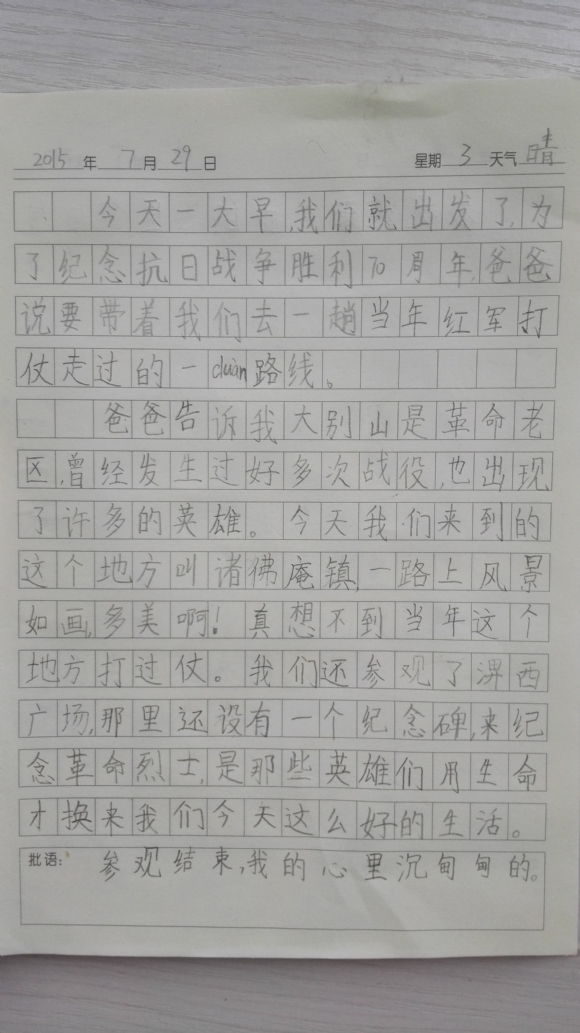 2015 年 7 月 29 日 星期 3 天气 晴
今天一大早,我们就出发了,为
了纪念抗日战争胜利70周年,爸爸
说要带着我们去一趟当年红军打
仗走过的一duàn路线。
爸爸告诉我大别山是革命老
区,曾经发生过好多次战役,也出现
了许多的英雄。今天我们来到的
这个地方叫诸佛庵镇,一路上风景
如画,多美啊!真想不到当年这个
地方打过仗。我们还参观了淠西
广场,那里还设有一个纪念碑,来纪
念革命烈士,是那些英雄们用生命
才换来我们今天这么好的生活。
批语: 参观结束,我的心里沉甸甸的。